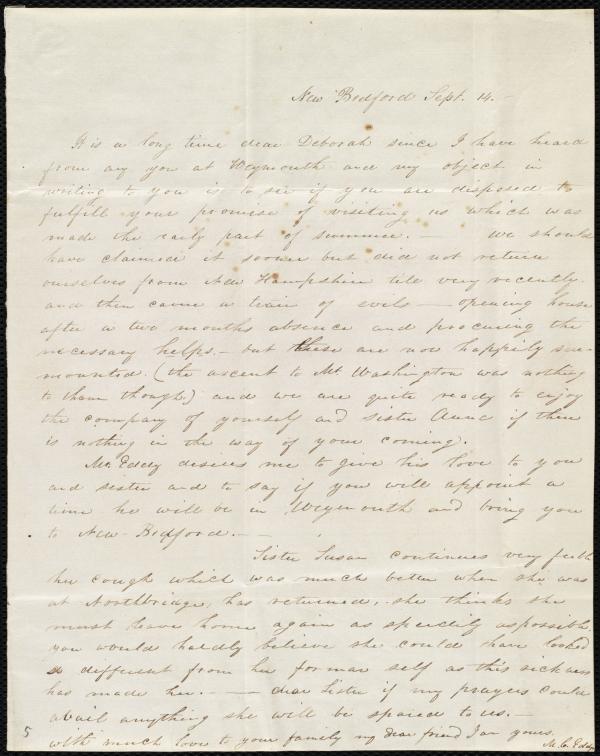 New Bedford Sept. 14.-
It is a long time dear Deborah since I have heard
from any you at Weymouth and my object in
writing to you is to see if you are disposed to
fulfill your promise of visiting us which was
made the early part of summer. — We should
have claimed it sooner but did not return
ourselves from New Hampshire till very recently.
and then came a train of evils — opening house
after a two months absence and procuring the
necessary helps. - but these are now happily sur-
mounted. (the ascent to Mt. Washington was nothing
to them though,) and we are quite ready to enjoy
the company of yourself and sister Anne if there
is nothing in the way of your coming.
Mr. Eddy desires me to give his love to you
and sister and to say if you will appoint a
time he will be in Weymouth and bring you
to New-Bedford. —
Sister Susan continues very feeble
her cough which was much better when she was
at Northbridge, has returned, - she thinks she
must leave home again as speedily as possible
you would hardly believe she could have looked
so different from her former self as this sickness
has made her. - — dear Sister if my prayers could
avail anything she will be spared to us. -
With much love to your family my dear friend I am yours.
M. C. Eddy
5